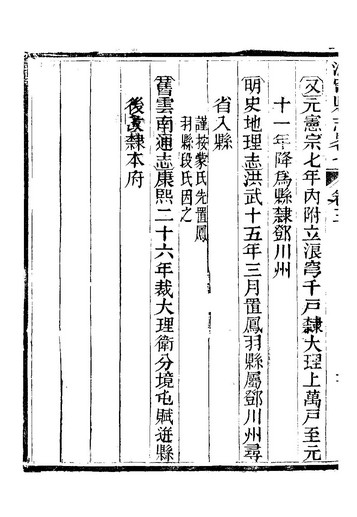 浪穹縣志略 卷三
又元憲宗七年內附立浪穹千戶隸大理上萬戶至元
十一年降爲縣隸鄧川州
明史地理志洪武十五年三月置鳳羽縣屬鄧川州尋
省入縣
謹按蒙氏先置鳳
羽縣段氏因之
舊雲南通志康熙二十六年裁大理衛分境屯賦進縣
後改隸本府